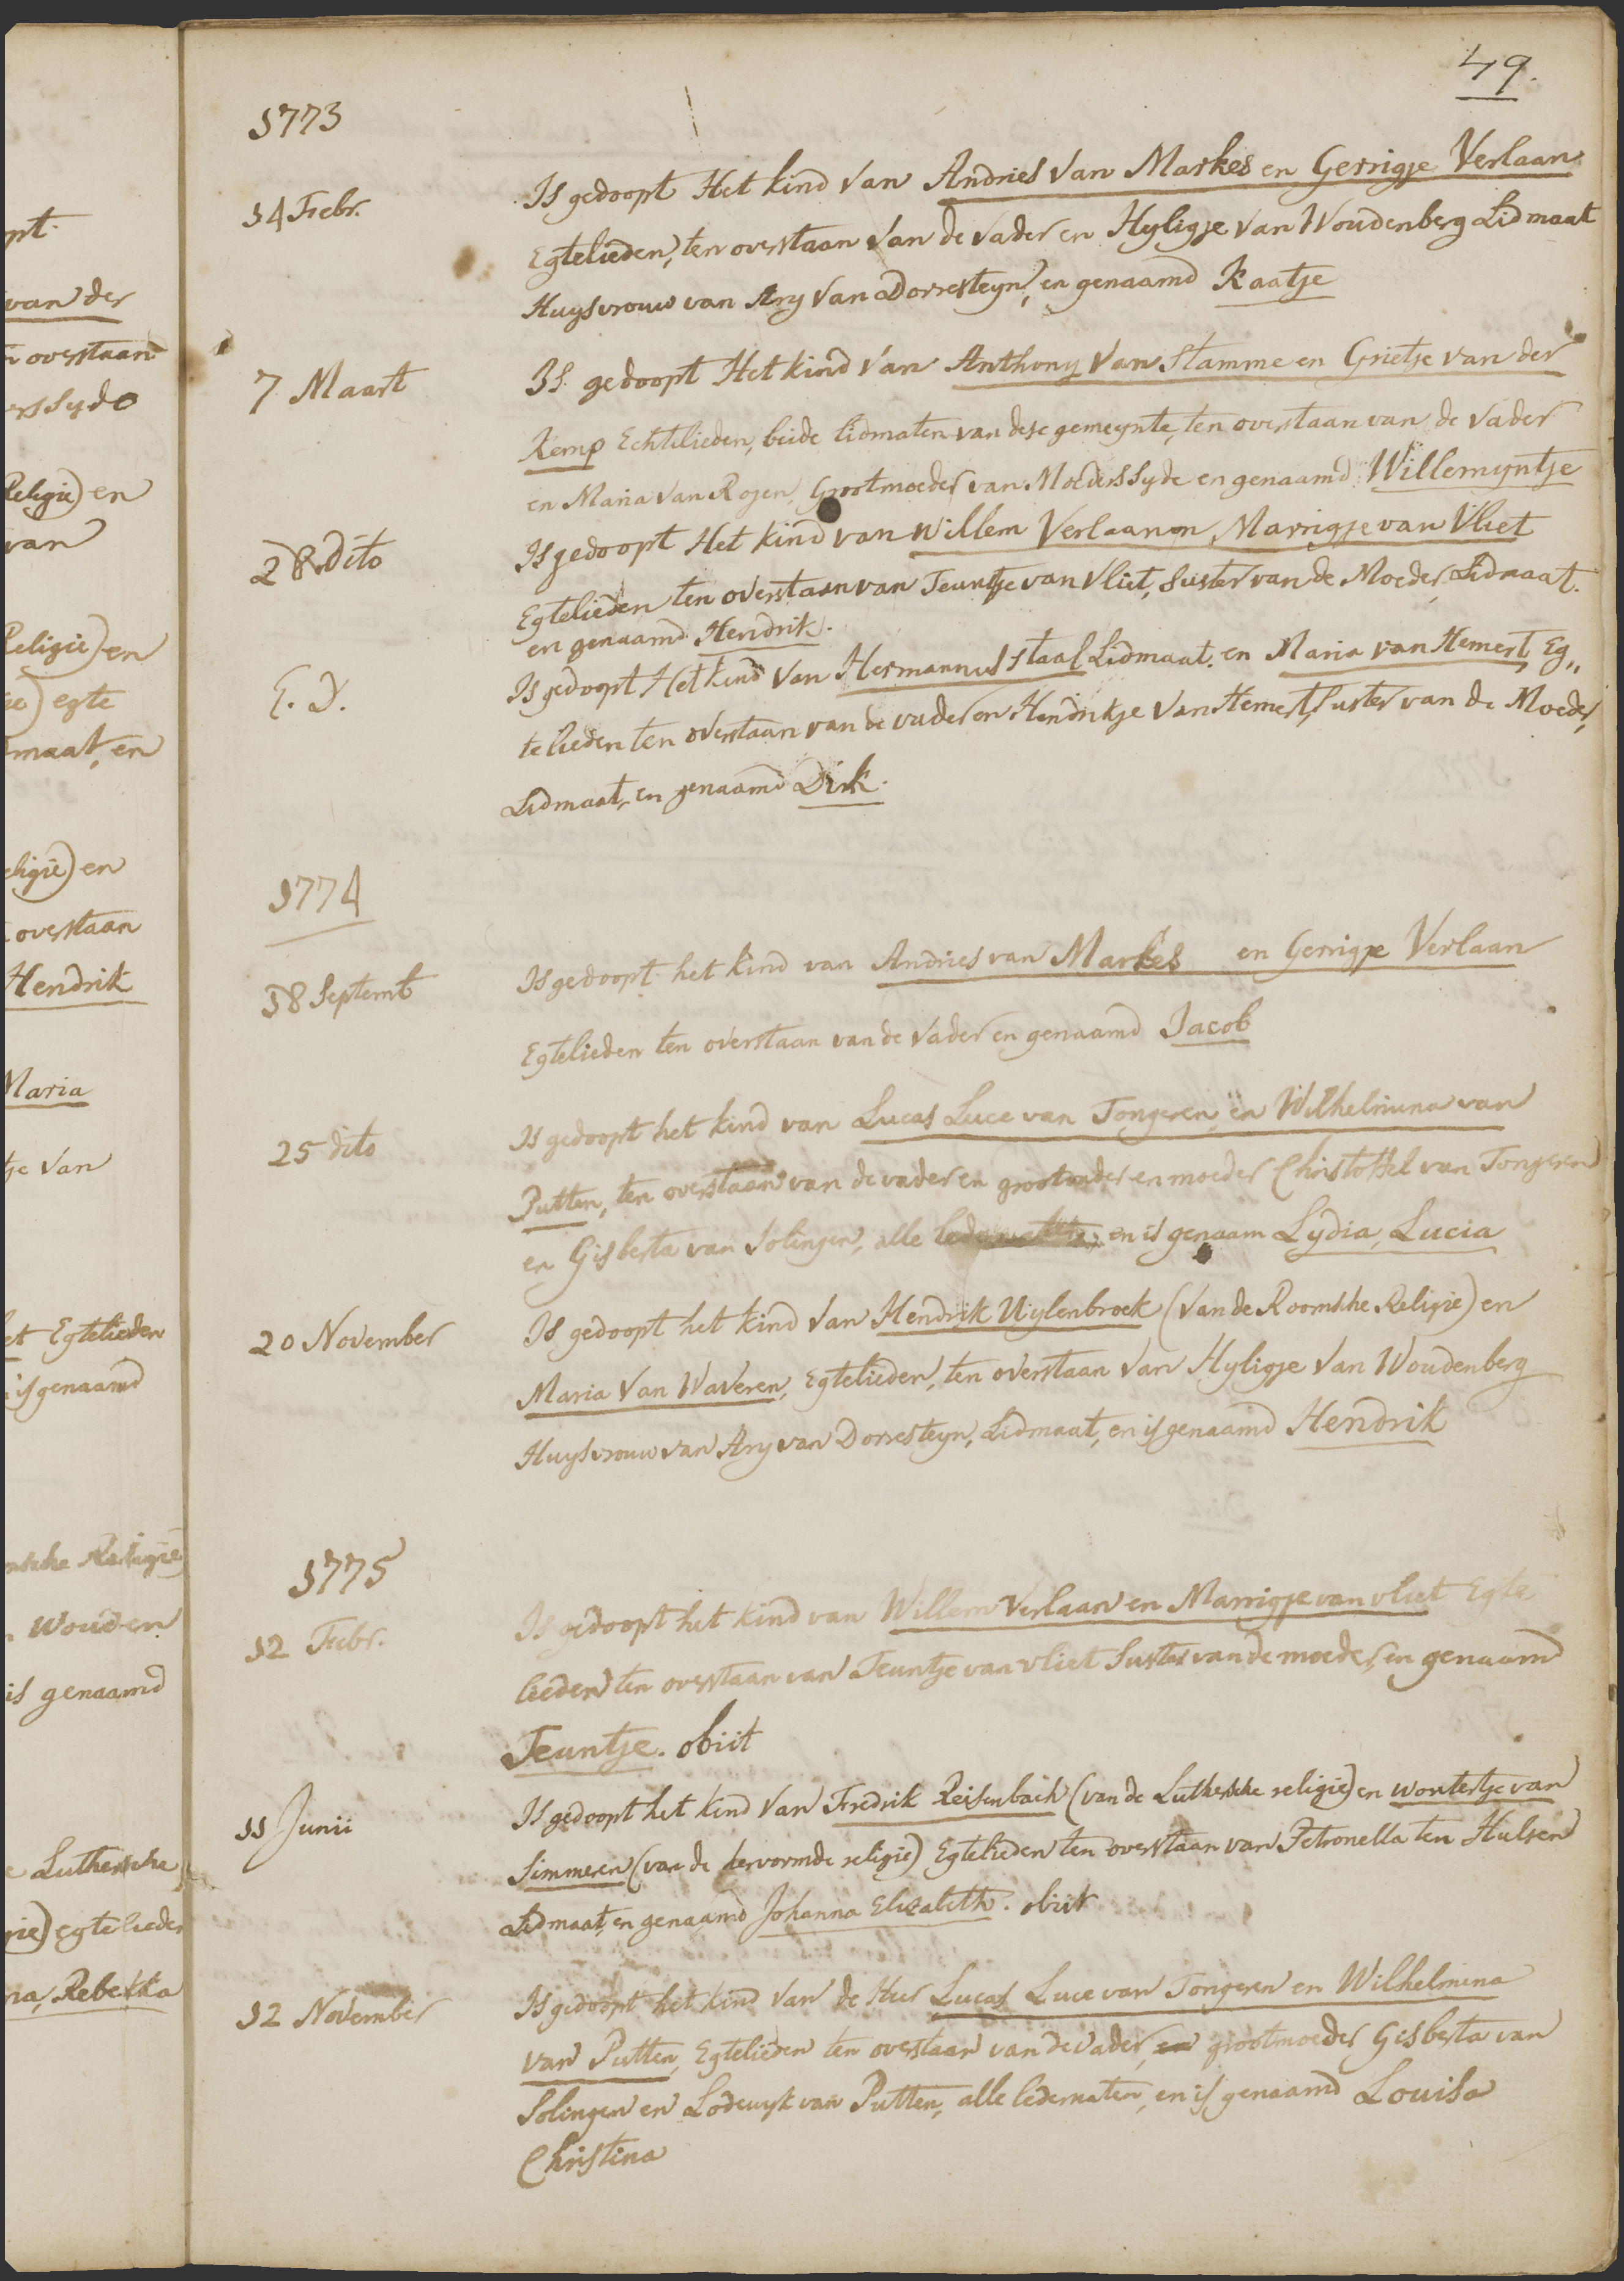 49.
1773
14 Febr.
Is gedoopt Het kind van Andries van Markes en Gerrigje Verlaan
Egtelieden, ten overstaan van de vader en Hyligje van Woudenberg Lidmaat
Huysvrouw van Ary van Dorresteyn, en genaamd Kaatje
7 Maart
Is gedoopt Het kind van Anthony van Stamme en Grietje van der
Kemp Echtelieden, beide lidmaten van dese gemeynte, ten overstaan van de vader
en Maria van Rojen, Grootmoeder van Moeders Syde en genaamd Willemyntje
28 dito
Is gedoopt Het kind van Willem Verlaan en Marrigje van Vliet
Egtelieden ten overstaan van Teuntje van Vliet, suster van de Moeder, Lidmaat.
en genaamd Hendrik.
E. D.
Is gedoopt Het kind van Hermannus Staal Lidmaat. en Maria van Hemert, Eg„
telieden ten overstaan van de vader en Hendrikje van Hemert, suster van de Moeder,
Lidmaat, en genaamd Dirk.
1774
18 Septemb
Is gedoopt het kind van Andries van Markes en Gerrigje Verlaan
Egtelieden ten overstaan van de vader en genaamd Jacob
25 dito
Is gedoopt het kind van Lucas Luce van Tongeren, en Wilhelmina van
Putten, ten overstaan van de vader en grootvader en moeder Christoffel van Tongeren
en Gisberta van Solingen, alle en is genaam Lydia, Lucia
20 November
Is gedoopt het kind van Hendrik Uijlenbroek (van de Roomshe Religie) en
Maria van Waveren, Egtelieden, ten overstaan van Hyligje van Woudenberg
Huysvrouw van Ary van Dorresteyn, Lidmaat, en is genaamd Hendrik
1775
12 Febr.
Is gedoopt het kind van Willem Verlaan en Marrigje van vliet Egte
lieden ten overstaan van Teuntje van vliet Suster van de moeder, en genaamd
Teuntje. obiit
11 Junii
Is gedoopt het kind van Fredrik Reisenbach (van de Luthersche religie) en woutertje van
Simmeren (van de hervormde religie) Egtelieden ten overstaan van Petronella ten Hulsen
Lidmaat, en genaamd Johanna Elizabeth. obiit
12 November
Is gedoopt het kind van de Heer Lucas Luce van Tongeren en Wilhelmina
van Putten, Egtelieden ten overstaan van de vader, en grootmoeder Gisberta van
Solingen en Lodewyk van Putten, alle ledematen, en is genaamd Louisa
Christina
van der
overstaan
Religie) en
van
Religie) en
egte
maat, en
en
overstaan
Hendrik
Maria
van
Egtelieden
is genaamd
Religie
Wouden
is genaamd
Luthersche
egtelieden
Rebekka